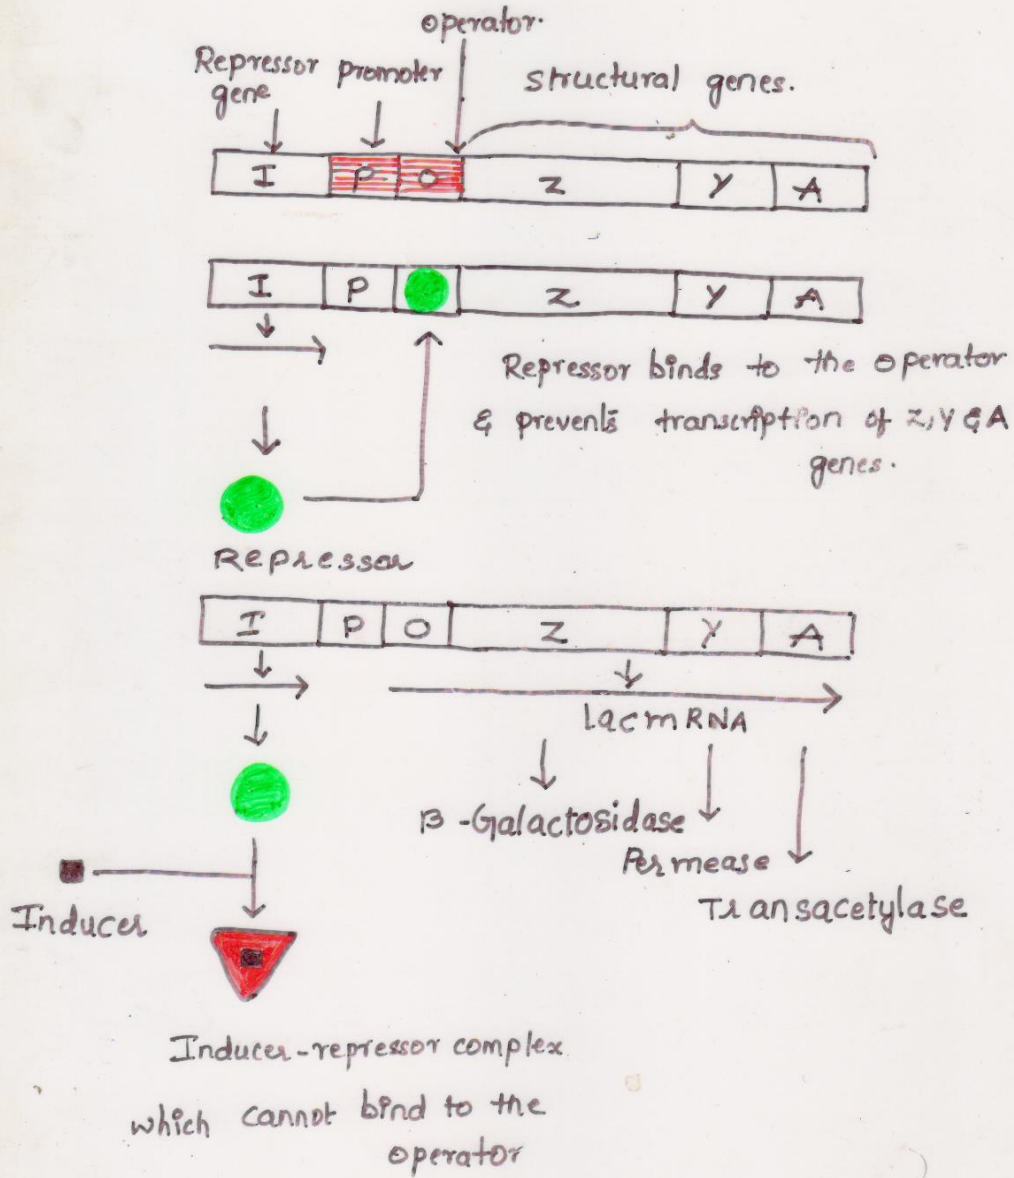 operator.
Repressor promoter
gene
structural genes.
I P O Z Y A
I P Z Y A
Repressor binds to the operator
& prevents transcription of Z, Y & A
genes.
Repressor
I P O Z Y A
Lac mRNA
B-Galactosidase
Permease
Transacetylase
Inducer
Inducer-repressor complex
which cannot bind to the
operator